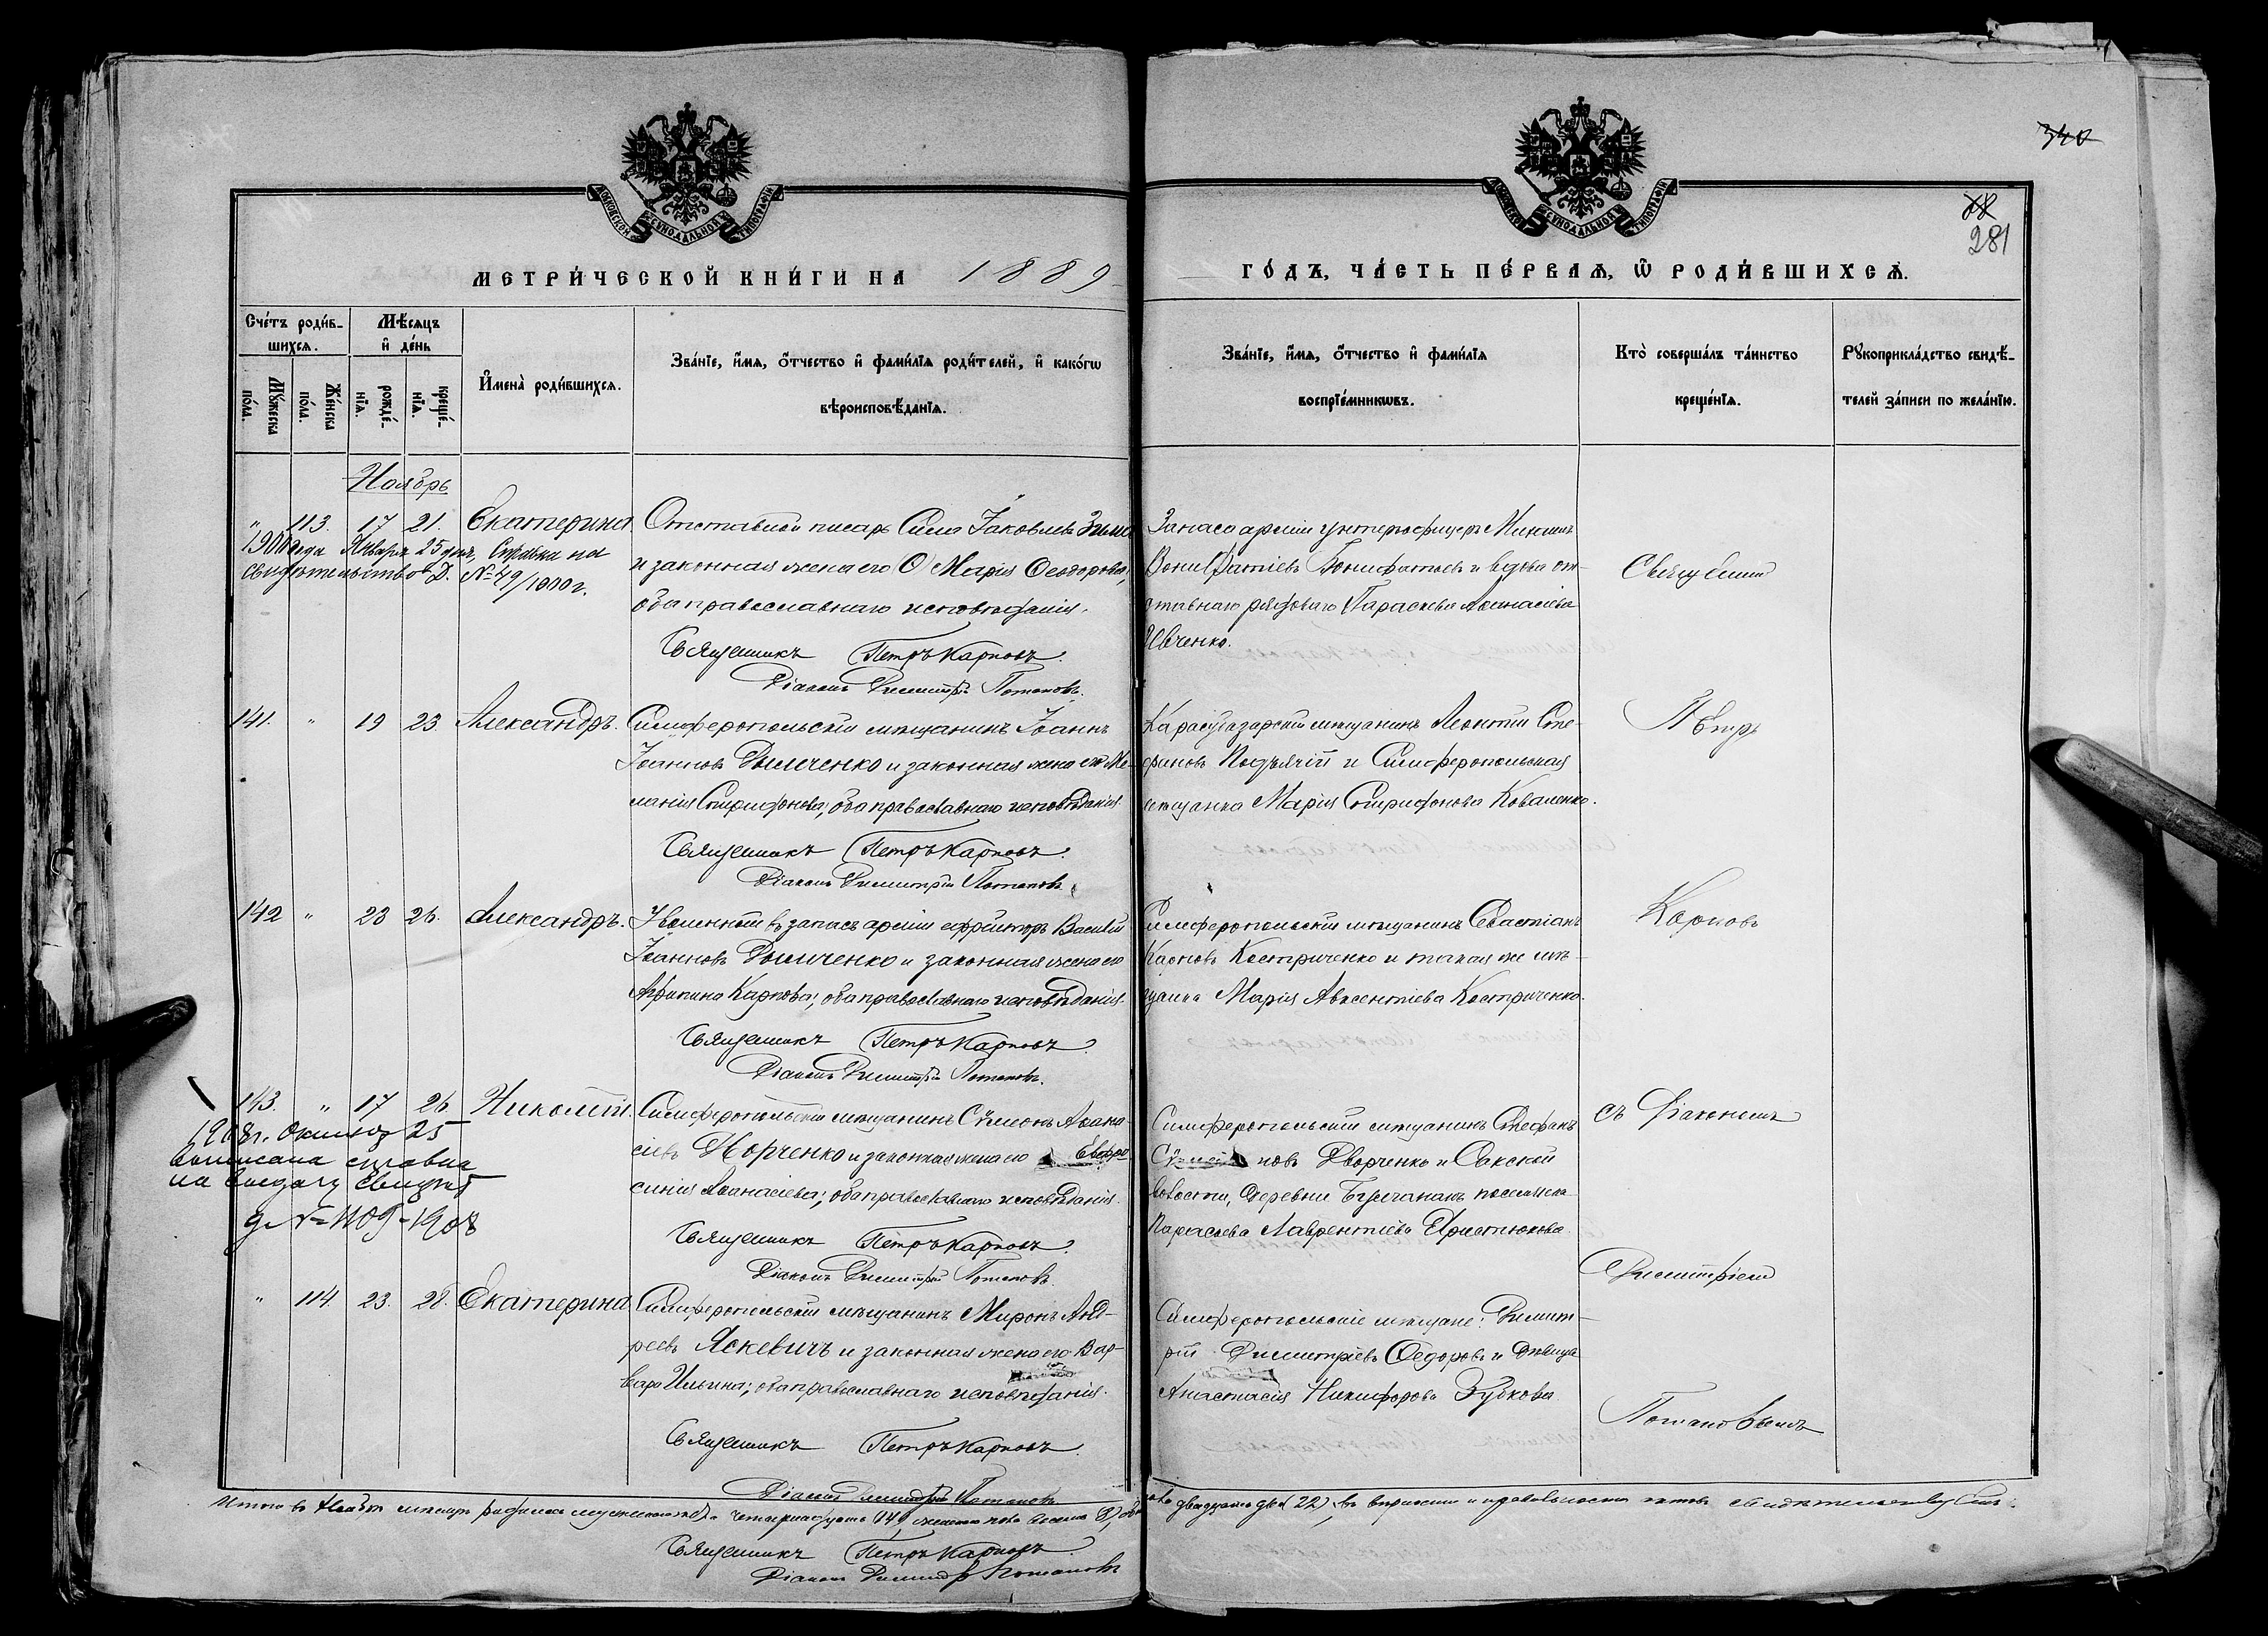 340
88
281
МОСКОВСКОЙ СѴНОДАЛЬНОЙ ТИПОГРАФІИ
МОСКОВСКОЙ СѴНОДАЛЬНОЙ ТИПОГРАФІИ
МЕТРИ́ЧЕСКОЙ КНИ́ГИ НА 1889
ГО́ДЪ, ЧА́СТЬ ПЕ́РВАѦ, Ѡ҆ РОДИ́ВШИХСѦ.
Сче́тъ роди́в-
шихсѧ.
Мѣ́сѧцъ
и҆ де́нь
Мꙋ́жеска
по́ла.
Же́нска
по́ла.
рожде́-
нїѧ.
креще́-
нїѧ.
И҆мена̀ роди́вшихсѧ.
Зва́нїе, и҆́мѧ, ѻ҆́тчество и҆ фами́лїѧ роди́телей, и҆ како́гѡ
вѣроисповѣ́данїѧ.
Зва́нїе, и҆́мѧ, ѻ҆́тчество и҆ фами́лїѧ
воспрїе́мникѡвъ.
Кто̀ соверша́лъ та́инство
креще́нїѧ.
Рꙋкоприкла́дство свидѣ́-
телей за́писи по жела́нїю.
Ноябрь
" 113. 17 21. Екатерина
1900 года Января 25 дня, Справка на
свидѣтельство Д. № 49/1900 г.
Отставной писарь Сила Іаковлевъ
и законная жена его Марія Ѳеодорова,
оба православнаго исповѣданія.
Священникъ Петръ Карповъ.
Діаконъ Димитрій Потаповъ.
Запаса арміи унтерофицеръ
Вонифатіевъ Бонифатьевъ и вдова от-
ставнаго рядоваго Параскева Аѳанасіева
Ивченко.
Священно
141. " 19 23. Александръ.
Симферопольскій мѣщанинъ Іоаннъ
Іоанновъ Дымченко и законная жена его Ме-
ланія Спиридонова; оба православнаго исповѣданія.
Священникъ Петръ Карповъ.
Діаконъ Димитрій Потаповъ.
Карасубазарскій мѣщанинъ Леонтій Сте-
фановъ Подъячій и Симферопольская
мѣщанка Марія Спиридонова Коваленко.
Петръ
142 " 23 26. Александръ.
Уволенный въ запасъ арміи ефрейторъ Василій
Іоанновъ Дымченко и законная жена его
Агрипина Карпова; оба православнаго исповѣданія.
Священникъ Петръ Карповъ.
Діаконъ Димитрій Потаповъ.
Симферопольскій мѣщанинъ Севастіанъ
Карповъ Костриченко и такая же мѣ-
щанка Марія Авксентіева Костриченко.
Карповъ
143. " 17 26 Николай.
1908 г. Октября 25
выписана справка
на выдачу свидѣт
д № 1109-1908
Симферопольскій мѣщанинъ Сѵмеонъ Аѳана
сіевъ Норченко и законная жена его Евфро
синія Аѳанасіева; оба православнаго исповѣданія.
Священникъ Петръ Карповъ.
Діаконъ Димитрій Потаповъ.
Симферопольскій мѣщанинъ Стефанъ
новъ Дворченко и Сакской
волости, деревни поселянка
Параскева Лаврентіева Христюкова.
съ Діакономъ
Димитріемъ
" 114. 23. 28. Екатерина
Симферопольскій мѣщанинъ Миронъ Анд-
реевъ Яскевичъ и законная жена его Вар-
вара Ильина; оба православнаго исповѣданія.
Священникъ Петръ Карповъ.
Діаконъ Димитрій Потаповъ
Симферопольскіе мѣщане: Димит-
рій Димитріевъ Ѳедоровъ и дѣвица
Анастасія Никифорова Зубкова
Потаповымъ
Итого въ Ноябрѣ мѣсяцѣ родилось мужескаго пола четырнадцать 14, женскаго пола восемь 8,
двадцать два (22), въ вѣрности и правильности актовъ
Священникъ Петръ Карповъ.
Діаконъ Димитрій Потаповъ